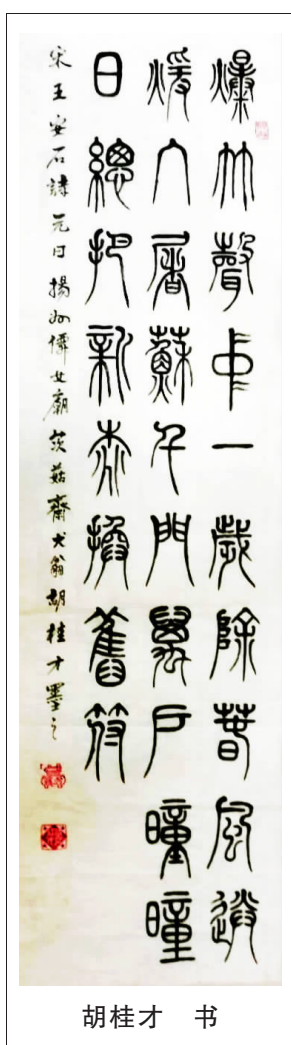 爆竹聲中一歲除春風送
煖入屠蘇千門萬戶曈曈
日總把新桃換舊符
宋王安石詩元日揚州僊女廟茨菇齋翁胡桂才墨之
胡桂才 书